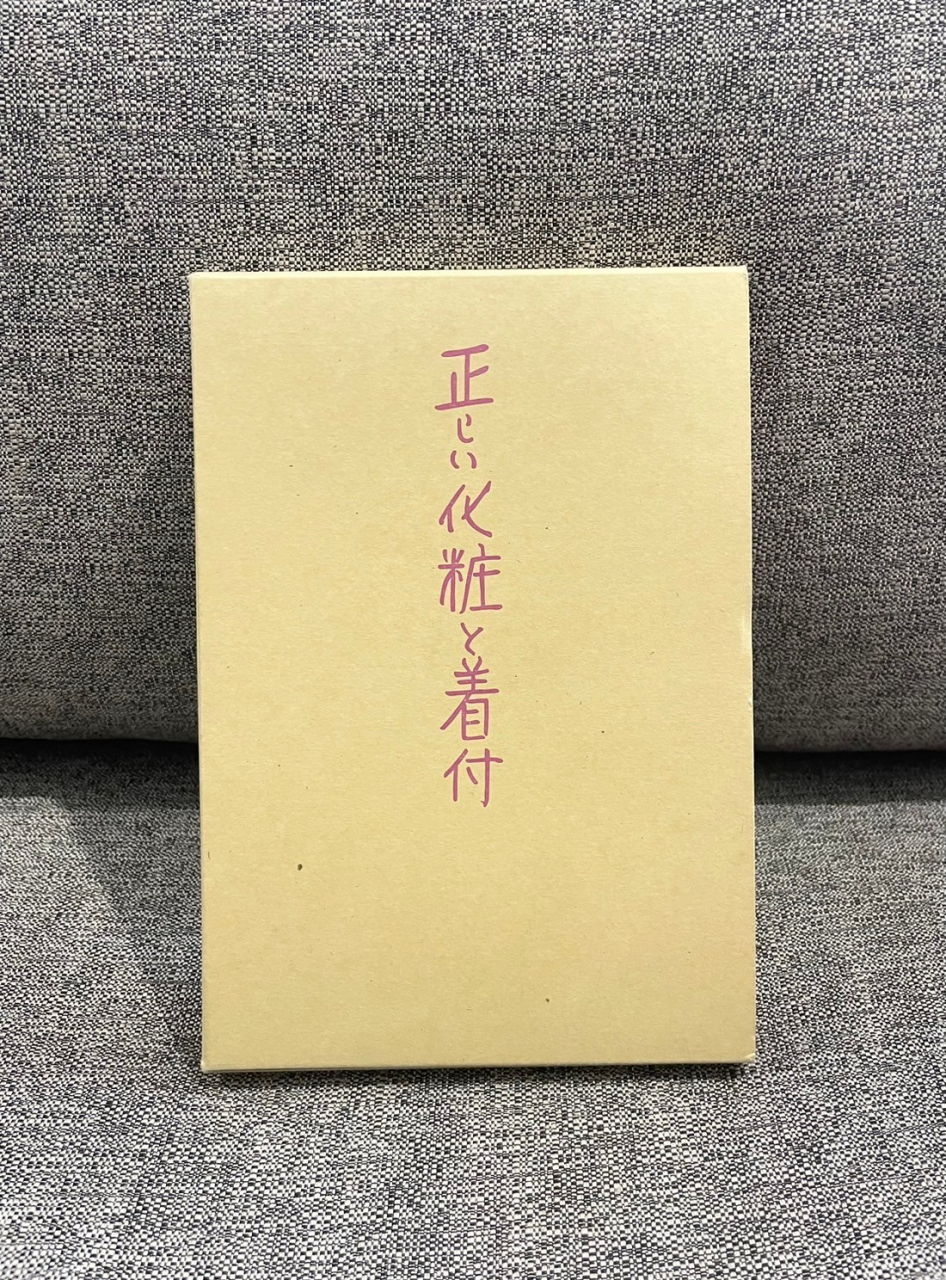 正しい化粧と着付